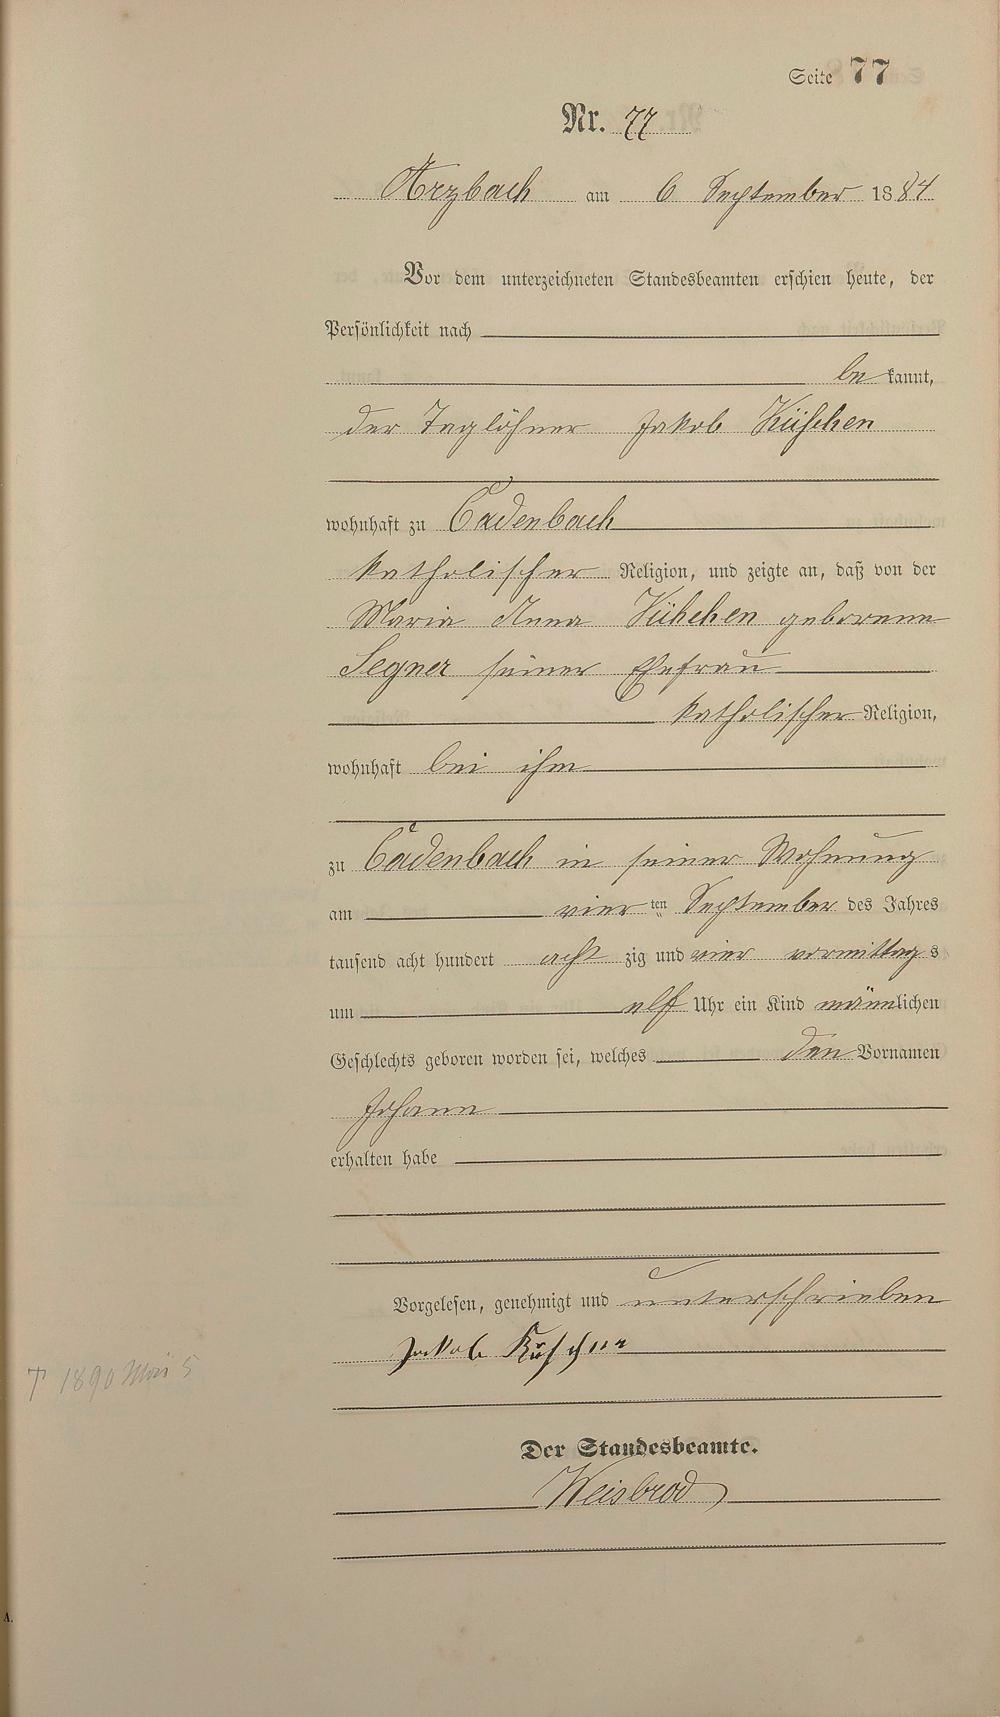 Seite 77
Nr. 77
Arzbach am 6 September 1884
Vor dem unterzeichneten Standesbeamten erschien heute, der
Persönlichkeit nach
bekannt,
der Taglöhner Jakob
wohnhaft zu Cadenbach
katholischer Religion, und zeigte an, daß von der
Maria Anna geborene
Segner seiner Ehefrau
katholischer Religion,
wohnhaft bei ihm
zu Cadenbach in seiner Wohnung
am vierten September des Jahres
tausend acht hundert achtzig und vier vormittags
um elf Uhr ein Kind männlichen
Geschlechts geboren worden sei, welches den Vornamen
Johann
erhalten habe
Vorgelesen, genehmigt und unterschrieben
Jakob
† 1890 Mai 5
Der Standesbeamte.
Weisbrod
A.